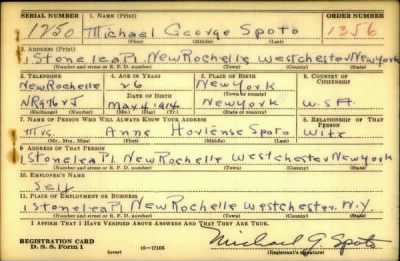 SERIAL NUMBER 1. NAME (Print) ORDER NUMBER
1250 Michael George Spoto 1356
(First) (Middle) (Last)
2. ADDRESS (Print)
1 Stonelea Pl. New Rochelle Westchester New York
(Number and street or R. F. D. number) (Town) (County) (State)
3. TELEPHONE 4. AGE IN YEARS 5. PLACE OF BIRTH 6. COUNTRY OF CITIZENSHIP
New Rochelle 26 New York
DATE OF BIRTH
May 4 1914 New York U.S.A.
(Exchange) (Number) (Mo.) (Day) (Yr.) (State or country)
7. NAME OF PERSON WHO WILL ALWAYS KNOW YOUR ADDRESS 8. RELATIONSHIP OF THAT PERSON
Mrs. Anne Hortense Spoto Wife
(Mr., Mrs., Miss) (First) (Middle) (Last)
9. ADDRESS OF THAT PERSON
1 Stonelea Pl. New Rochelle Westchester New York
(Number and street or R. F. D. number) (Town) (County) (State)
10. EMPLOYER'S NAME
Self
11. PLACE OF EMPLOYMENT OR BUSINESS
1 Stonelea Pl New Rochelle Westchester. N.Y
(Number and street or R. F. D. number) (Town) (County) (State)
I AFFIRM THAT I HAVE VERIFIED ABOVE ANSWERS AND THAT THEY ARE TRUE.
REGISTRATION CARD
D. S. S. Form 1 (over) 16—17105 Michael G. Spoto
(Registrant's signature)